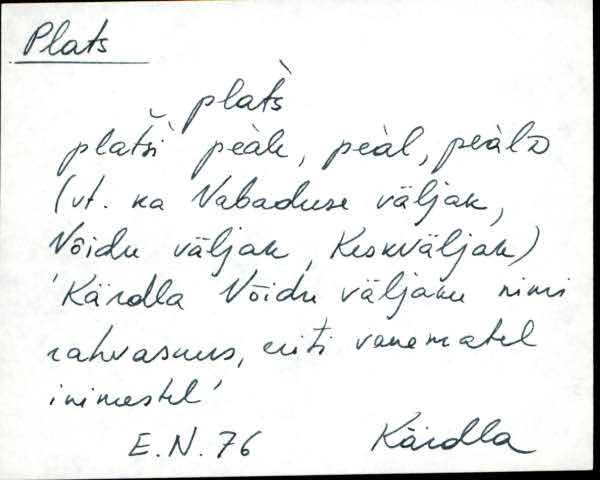 Plats
plats̀
plats̆ì peàle, peàl, peàlD
(vt. ka Vabaduse väljak,
Võidu väljak, Keskväljak)
'Kärdla Võidu väljaku nimi
rahvasuus, eriti vanematel
inimestel'
E.N. 76 Kärdla